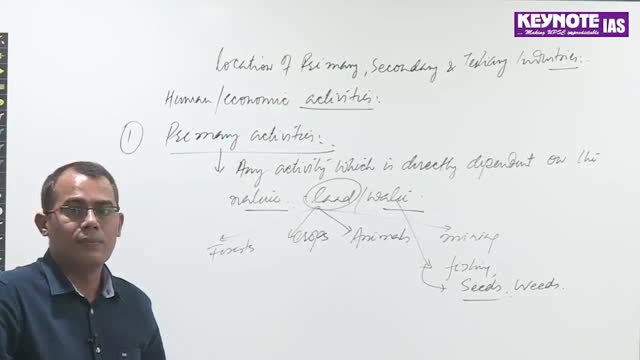 KEYNOTE IAS
... Making UPSC unpredictable
Location of Primary, Secondary & Tertiary Industries:.
Human/economic activities:
① Primary activities:.
Any activity which is directly dependent on the
nature. land/water.
Forests crops Animals mining
fishing
Seeds, Weeds.